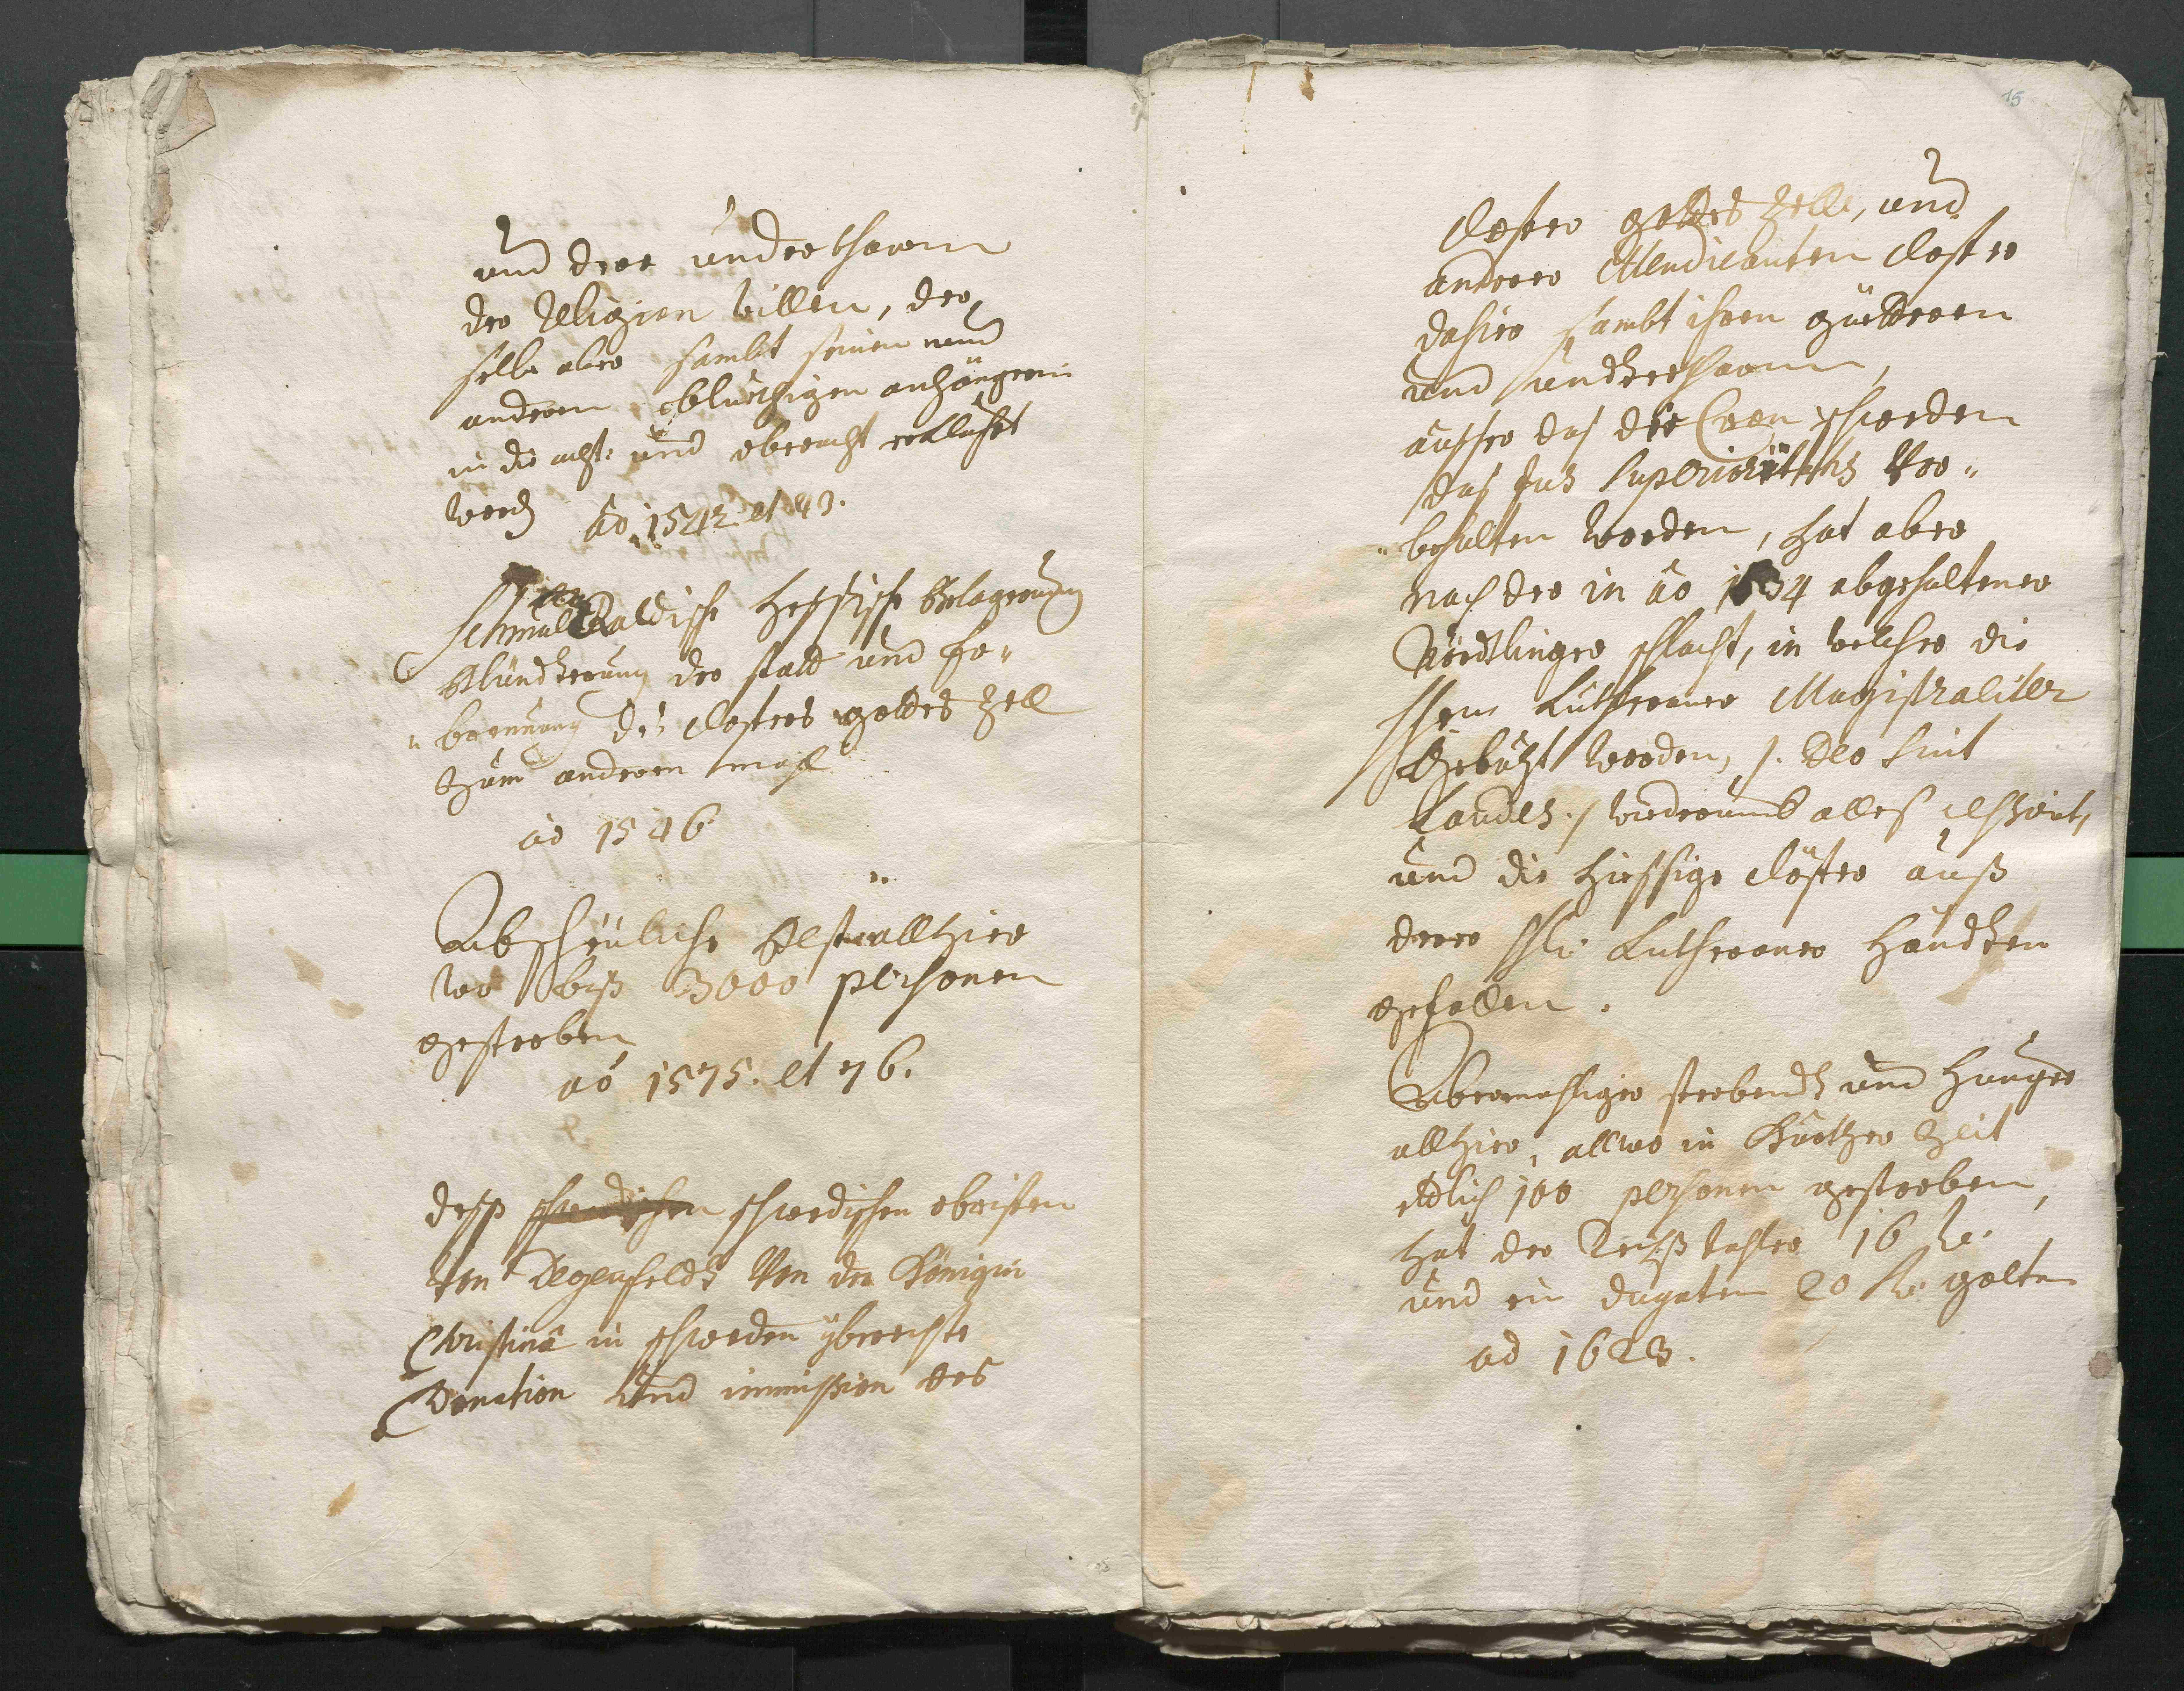 und derer underthanen
der Religion willen, der
selbe aber sambt seinen und
anderen anhängern
in die acht: und aberacht erkläret
word. aò 1542 et 43.
Schmalkaldische Hessische Belagerung
blündterung der statt und
brennung des closters gottes Zell
zum anderen mahl
aò 1546
Abscheuliche Pest allhier
wo biß 3000 personen
gestorben
aò 1575. et 76.
dess schwedischen schwedischen obristen
von Degenfeldt von der Königin
Christina in schweden
Donation und immission des
15
closter gottes Zelle, und
anderer Mendicanten closter
dahier sambt ihren güetteren
und underthanen,
ausser das die Cron schweden
das Jus Superioritatis vor„
„behalten worden, hat aber
nach der in aò 1634 abgehaltener
Nördlinger schlacht, in welcher die
Lutheraner Magistraliter
gebuzt worden, /. Deo sint
Laudes ./ widerumb alles
und die hiessige clöster auß
derer Lutheraner händten
gefallen.
Abermahliger sterbendt und hunger
allhier, allwo in kurtzer Zeit
etlich 100 personen gestorben,
hat der Reichßthaler 16
und ein dugaten 20 golten
aò 1623.